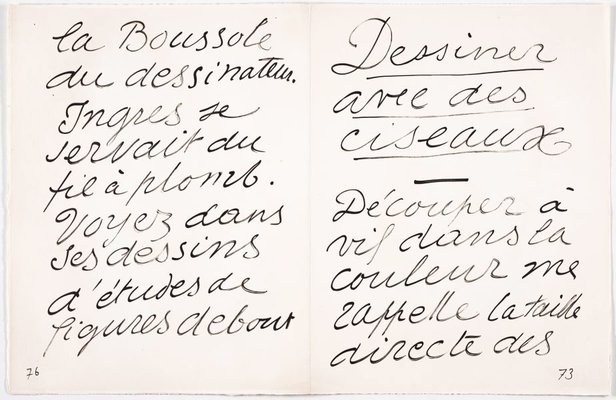 la Boussole
du dessinateur.
Ingres se
servait du
fil à plomb.
Voyez dans
ses dessins
d'études de
figures debout
76
Dessiner
avec des
ciseaux
Découper à
vif dans la
couleur me
rappelle la taille
directe des
73